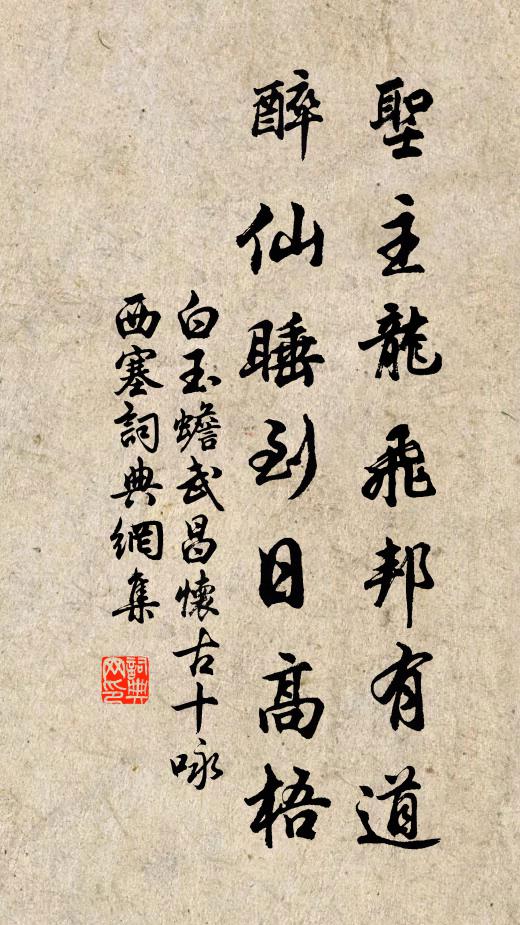 聖主龍飛邦有道
醉仙睡到日高梧
白玉蟾武昌懷古十咏
西塞詞典網集
詞典網印